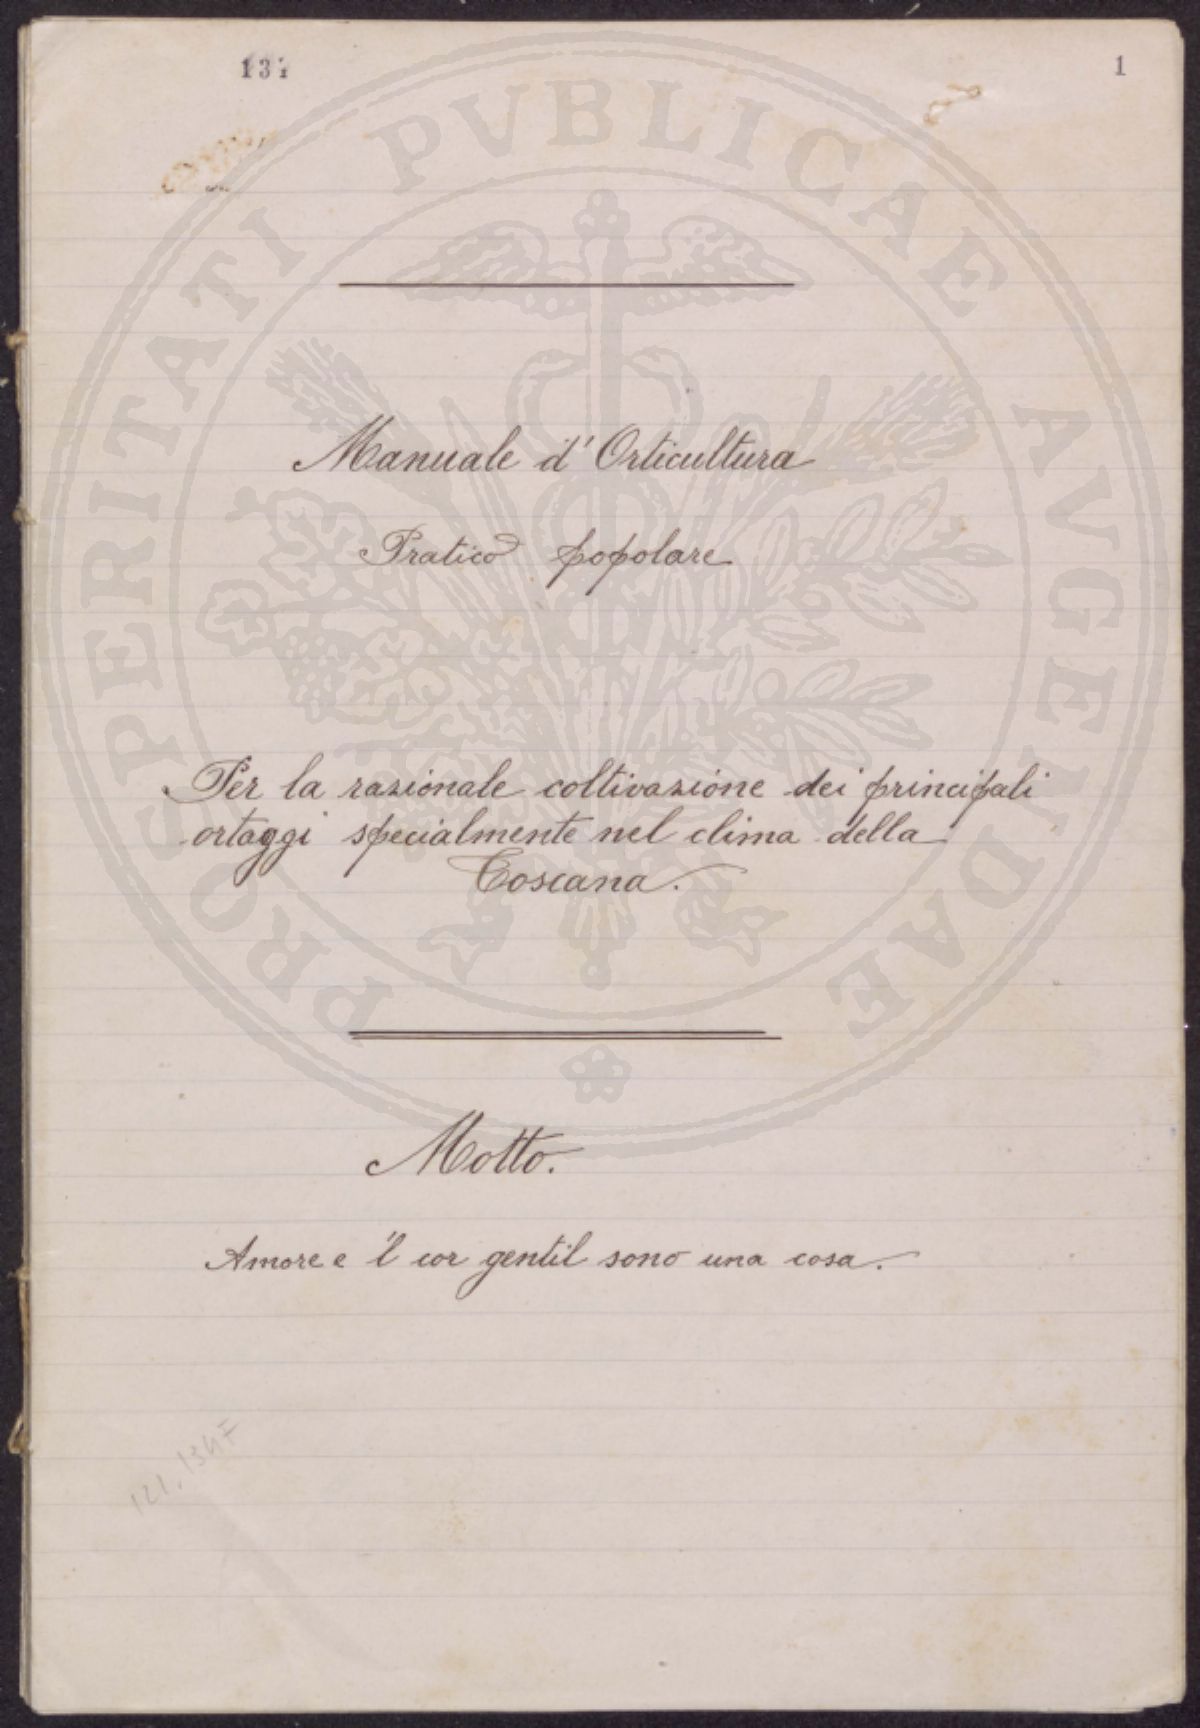 131 1
PROSPERITATI PVBLICAE AVGENDAE
Manuale d'Orticultura
Pratico popolare
Per la razionale coltivazione dei principali
ortaggi specialmente nel clima della
Toscana.
Motto.
Amore e 'l cor gentil sono una cosa.
121.1347